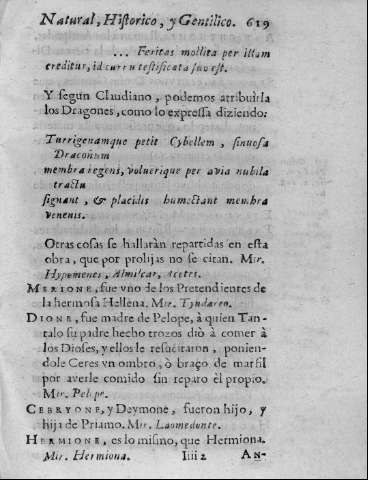 Natural, Historico, y Gentilico. 619
... Feritas mollita per illam
creditur, id curru testificata suo est.
Y segun Claudiano, podemos atribuirla
los Dragones, como lo expressa diziendo:
Turrigenamque petit Cybellem, sinuosa
Draconum
membra regens, voluerique per avia nubila
tractu
signant, & placidis humectant membra
venenis.
Otras cosas se hallaràn repartidas en esta
obra, que por prolijas no se citan. Mir.
Hypomenes, Almilcar, Acetes.
MERIONE, fue vno de los Pretendientes de
la hermosa Hellena. Mir. Tyndareo.
DIONE, fue madre de Pelope, à quien Tan-
talo su padre hecho trozos diò à comer à
los Dioses, y ellos le resucitaron, ponien-
dole Ceres vn ombro, ò braço de marfil
por averle comido sin reparo el propio.
Mir. Pelope.
CEBRYONE, y Deymone, fueron hijo, y
hija de Priamo. Mir. Laomedonte.
HERMIONE, es lo mismo, que Hermiona.
Mir. Hermiona. Iiii 2 AN-